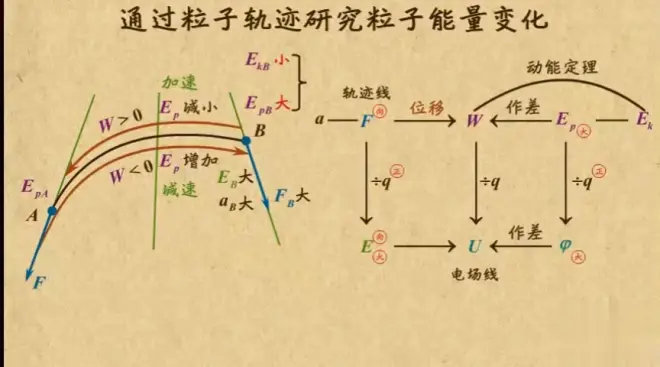 通过粒子轨迹研究粒子能量变化
E_{kB} 小
E_{pB} 大
加速
W > 0
E_p 减小
B
W < 0
E_p 增加
减速
E_{pA}
A
F
E_B 大
a_B 大
F_B 大
动能定理
轨迹线
a
F 向
位移
W
作差
E_p 大
E_k
÷q 正
÷q
÷q 正
E 向 大
U
作差
φ 大
电场线